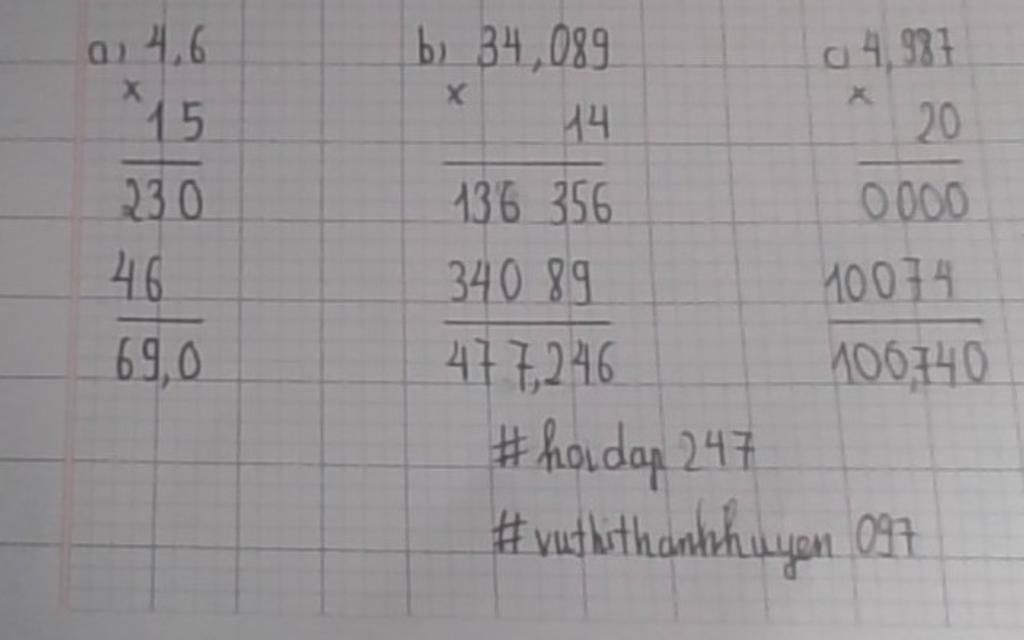 a) 4,6 b) 34,089 c) 4,987
× × ×
15 14 20
230 136 356 0000
46 340 89 10074
69,0 477,246 100,740
#hoidap 247
#vuthithanhhuyen 097